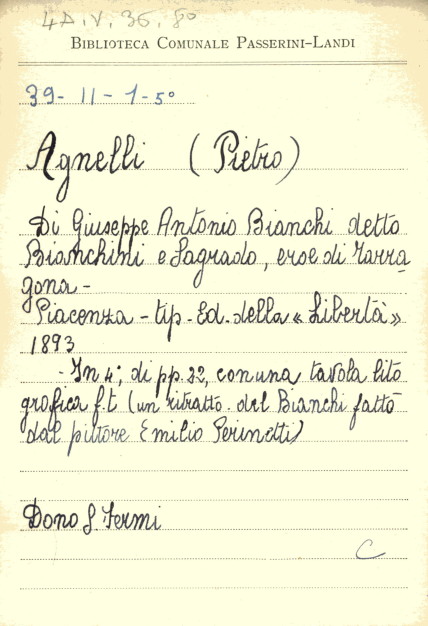 4A.V.36.8º
BIBLIOTECA COMUNALE PASSERINI-LANDI
39-11-1-5º
Agnelli (Pietro)
Di Giuseppe Antonio Bianchi detto
Bianchini e Sagrado, eroe di Tarra
gona-
Piacenza - tip. Ed. della « Libertà »
1893
- In 4; di pp. 22, con una tavola lito
grafica f.t (un ritratto del Bianchi fatto
dal pittore Emilio Perinetti)
Dono S. Fermi
C